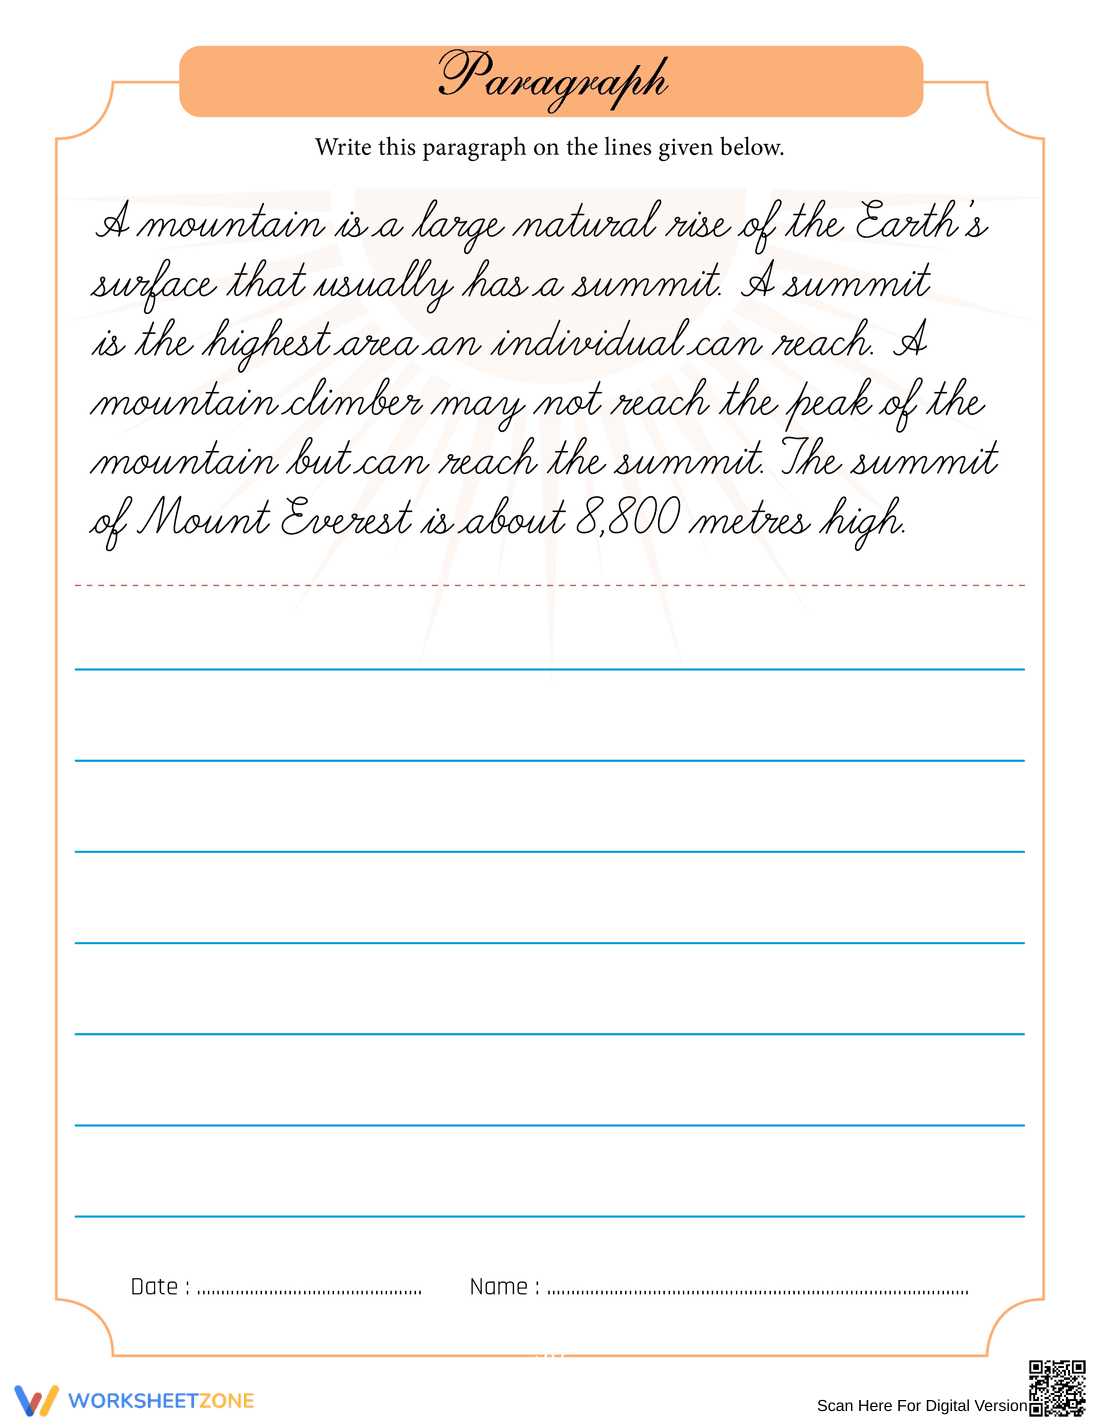 Paragraph
Write this paragraph on the lines given below.
A mountain is a large natural rise of the Earth's
surface that usually has a summit. A summit
is the highest area an individual can reach. A
mountain climber may not reach the peak of the
mountain but can reach the summit. The summit
of Mount Everest is about 8,800 metres high.
Date : ............................................... Name : .........................................................................................
WORKSHEETZONE
Scan Here For Digital Version